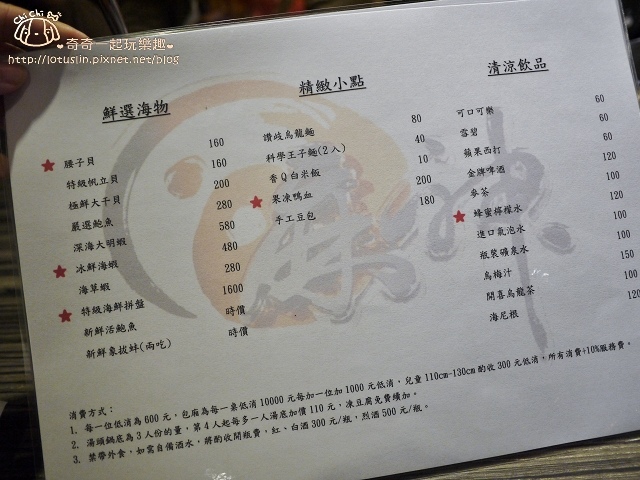 Chi Chi
❤奇奇一起玩樂趣❤
http://lotuslin.pixnet.net/blog
鮮選海物
腰子貝 160
特級帆立貝 160
極鮮大干貝 200
嚴選鮑魚 280
深海大明蝦 580
冰鮮海蝦 480
海草蝦 280
特級海鮮拼盤 1600
新鮮活鮑魚 時價
新鮮象拔蚌(兩吃) 時價
精緻小點
讚岐烏龍麵 80
科學王子麵(2入) 40
香Q白米飯 10
果凍鴨血 200
手工豆包 180
清涼飲品
可口可樂 60
雪碧 60
蘋果西打 60
金牌啤酒 120
麥茶 100
蜂蜜檸檬水 120
進口氣泡水 100
瓶裝礦泉水
烏梅汁 150
開喜烏龍茶
海尼根
消費方式：
1. 每一位低消為600元，包廂為每一桌低消10000元每加一位加1000元低消，兒童110cm-130cm酌收300元低消，所有消費+10%服務費。
2. 湯頭鍋底為3人份的量，第4人起每多一人湯底加價110元，凍豆腐免費續加。
3. 禁帶外食，如需自備酒水，將酌收開瓶費，紅、白酒300元/瓶，烈酒500元/瓶。